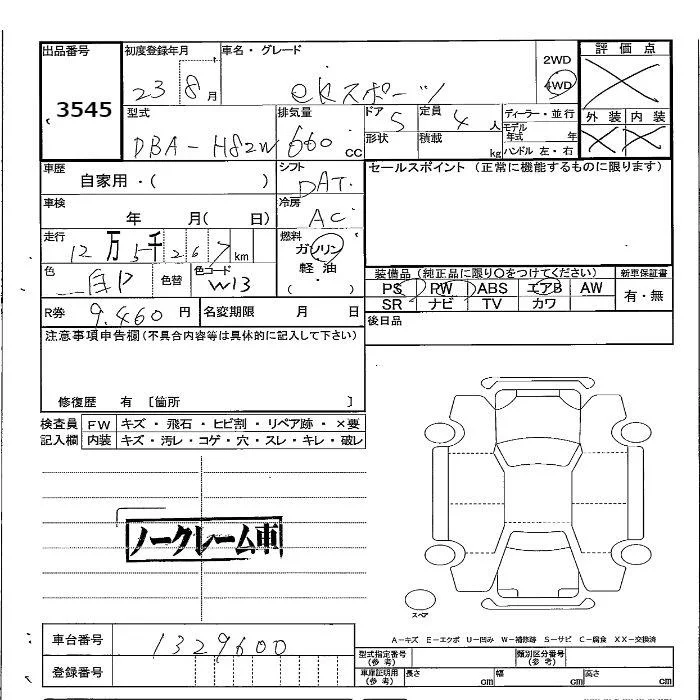 出品番号
3545
初度登録年月
23 8月
車名・グレード
eKスポーツ
2WD
4WD
評価点
外装 内装
型式
DBA-H82W
排気量
660 CC
ドア 5
形状
定員 4 人
積載 kg
ディーラー・並行
モデル年式 年
ハンドル 左・右
車歴
自家用・( )
シフト
DAT
セールスポイント (正常に機能するものに限ります)
車検
年 月( 日)
冷房
AC
走行
12万5千267km
燃料
ガソリン
軽油
( ・ )
色
白P
色替
色コード
W13
装備品 (純正品に限り○をつけてください)
PS PW ABS エアB AW
SR ナビ TV カワ
新車保証書
有・無
R券 9,460 円
名変期限 月 日
後日品
注意事項申告欄 (不具合内容等は具体的に記入して下さい)
修復歴 有 [箇所 ]
検査員記入欄
FW キズ・飛石・ヒビ割・リペア跡・×要
内装 キズ・汚レ・コゲ・穴・スレ・キレ・破レ
ノークレーム車
スペア
A-キズ E-エクボ U-凹み W-補修跡 S-サビ C-腐食 XX-交換済
車台番号 1329600
登録番号
型式指定番号 (参考)
類別区分番号 (参考)
車庫証明用 (参考)
長さ cm 幅 cm 高さ cm